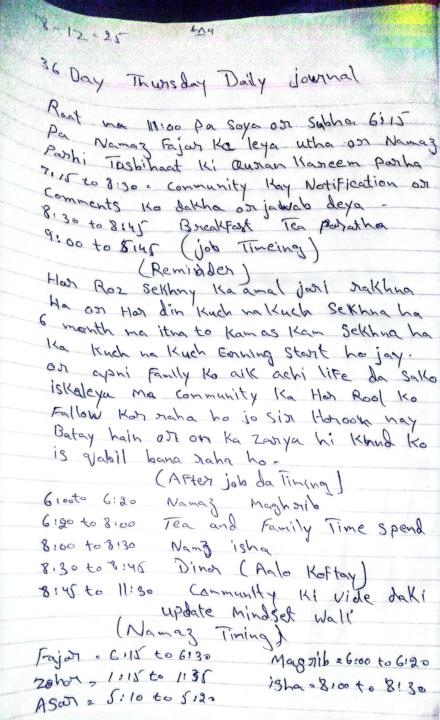 18-12-25
36 Day Thursday Daily journal
Raat ma 11:00 Pa Soya or Subha 6:15
Pa Namaz Fajar Ka leya utha or Namaz
Parhi Tasbihaat Ki Quran Kareem Parha
7:15 to 8:30 = Community Kay Notification or
Comments Ko dakha or jawab deya -
8:30 to 8:45 Breakfast Tea Paratha
9:00 to 5:45 (job Timeing)
(Reminder)
Har Roz Sekhny Ka amal jari rakhna
Ha or Har din Kuch na Kuch Sekhna ha
6 month ma itna to Kam as Kam Sekhna ha
Ka Kuch na Kuch Earning Start ho jay.
or apni Family Ko aik achi life da Sako
iskaleya ma Community Ka Har Rool Ko
Fallow Kar raha ho jo Sir Haroon nay
Batay hain or on Ka Zarya hi Khud Ko
is qabil bana raha ho -
(After job da Timing)
6:00 to 6:20 Namaz Maghrib
6:20 to 8:00 Tea and Family Time spend
8:00 to 8:30 Namz isha
8:30 to 8:45 Diner (Aalo Koftay)
8:45 to 11:30 Community Ki vide daki
update Mindset Wali
(Namaz Timing)
Fajar = 6:15 to 6:30 Magrib = 6:00 to 6:20
Zohar = 1:15 to 1:35 isha = 8:00 to 8:30
Asar = 5:10 to 5:20